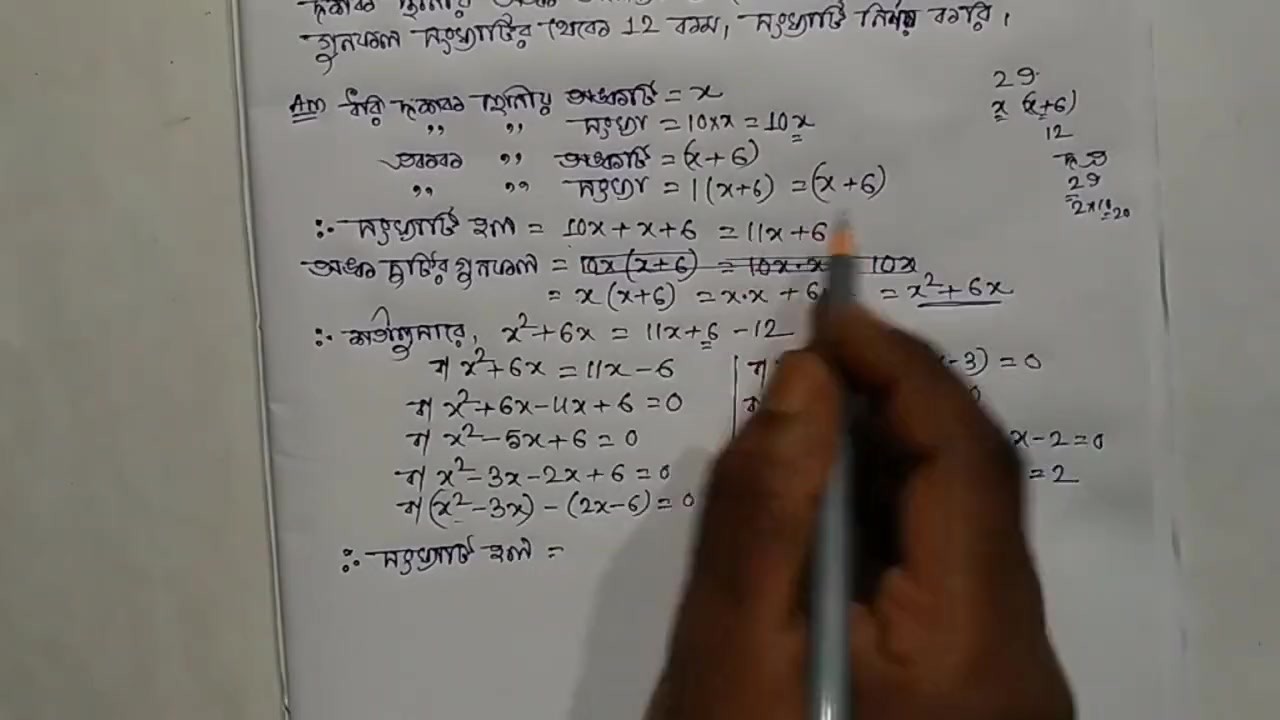 গুনফল সংখ্যাটির থেকে 12 কম, সংখ্যাটি নির্ণয় করি।
29
x (x+6)
12
দ এ
29
2×10=20
Ans ধরি দশকের স্থানীয় অঙ্কটি = x
,, ,, সংখ্যা = 10×x = 10x
একক ,, অঙ্কটি = (x+6)
,, ,, সংখ্যা = 1(x+6) = (x+6)
∴ সংখ্যাটি হল = 10x + x + 6 = 11x + 6
অঙ্ক দুটির গুনফল = 10x(x+6) = 10x·x 10x
= x(x+6) = x·x + 6 = x² + 6x
∴ শর্তানুসারে, x² + 6x = 11x + 6 - 12
বা x² + 6x = 11x - 6
বা x² + 6x - 11x + 6 = 0
বা x² - 5x + 6 = 0
বা x² - 3x - 2x + 6 = 0
বা (x² - 3x) - (2x - 6) = 0
বা - 3) = 0
বা 0
x - 2 = 0
= 2
∴ সংখ্যাটি হল =